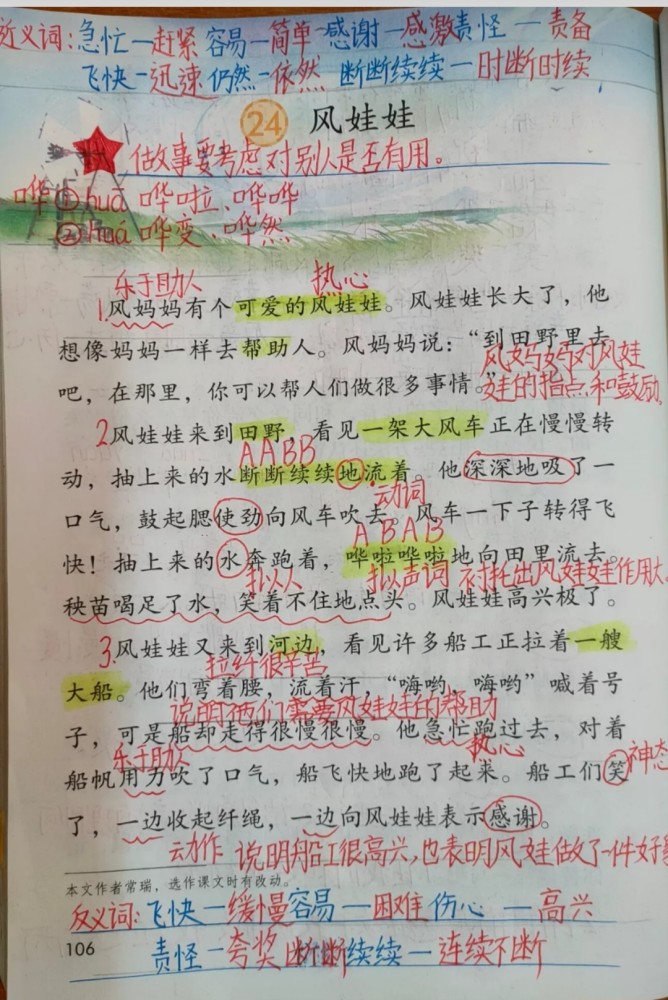 近义词:急忙—赶紧 容易—简单 感谢—感激 责怪—责备
飞快—迅速 仍然—依然 断断续续—时断时续
24 风娃娃
做故事要考虑对别人是否有用。
哗①huā 哗啦、哗哗
②huá 哗变、哗然
乐于助人 热心
1.风妈妈有个可爱的风娃娃。风娃娃长大了，他
想像妈妈一样去帮助人。风妈妈说：“到田野里去
风妈妈对风娃
吧，在那里，你可以帮人们做很多事情。”
娃的指点和鼓励
2风娃娃来到田野，看见一架大风车正在慢慢转
AABB
动，抽上来的水断断续续地流着。他深深地吸了一
动词
口气，鼓起腮使劲向风车吹去。风车一下子转得飞
ABAB
快！抽上来的水奔跑着，哗啦哗啦地向田里流去。
拟人 拟声词 衬托出风娃娃作用大
秧苗喝足了水，笑着不住地点头。风娃娃高兴极了。
3.风娃娃又来到河边，看见许多船工正拉着一艘
拉纤很辛苦
大船。他们弯着腰，流着汗，“嗨哟，嗨哟”喊着号
说明他们需要风娃娃的帮助
子，可是船却走得很慢很慢。他急忙跑过去，对着
乐于助人 热心 神态
船帆用力吹了口气，船飞快地跑了起来。船工们笑
了，一边收起纤绳，一边向风娃娃表示感谢。
动作 说明船工很高兴，也表明风娃做了一件好
本文作者常瑞，选作课文时有改动。
反义词:飞快—缓慢 容易—困难 伤心—高兴
106
责怪—夸奖 断断续续—连续不断